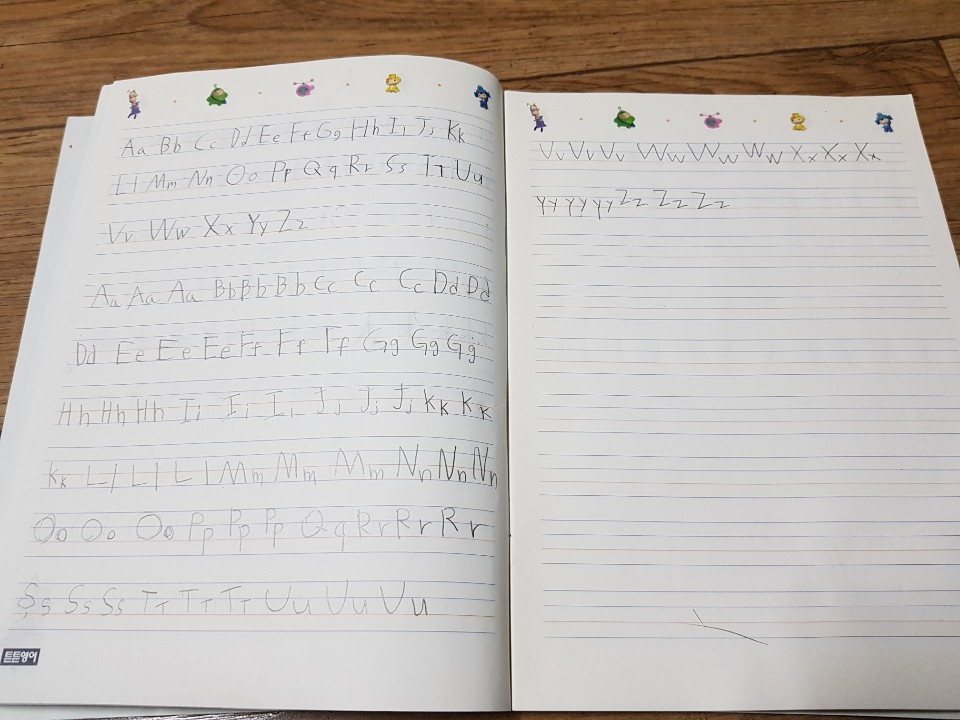 Aa Bb Cc Dd Ee Ff Gg Hh Ii Jj Kk
Ll Mm Nn Oo Pp Qq Rr Ss Tt Uu
Vv Ww Xx Yy Zz
Aa Aa Aa Bb Bb Bb Cc Cc Cc Dd Dd
Dd Ee Ee Ee Ff Ff Ff Gg Gg Gg
Hh Hh Hh Ii Ii Ii Jj Jj Jj Kk Kk
Kk Ll Ll Ll Mm Mm Mm Nn Nn Nn
Oo Oo Oo Pp Pp Pp Qq Rr Rr Rr
Ss Ss Ss Tt Tt Tt Uu Uu Uu
튼튼영어
Vv Vv Vv Ww Ww Ww Xx Xx Xx
Yy Yy Yy Zz Zz Zz